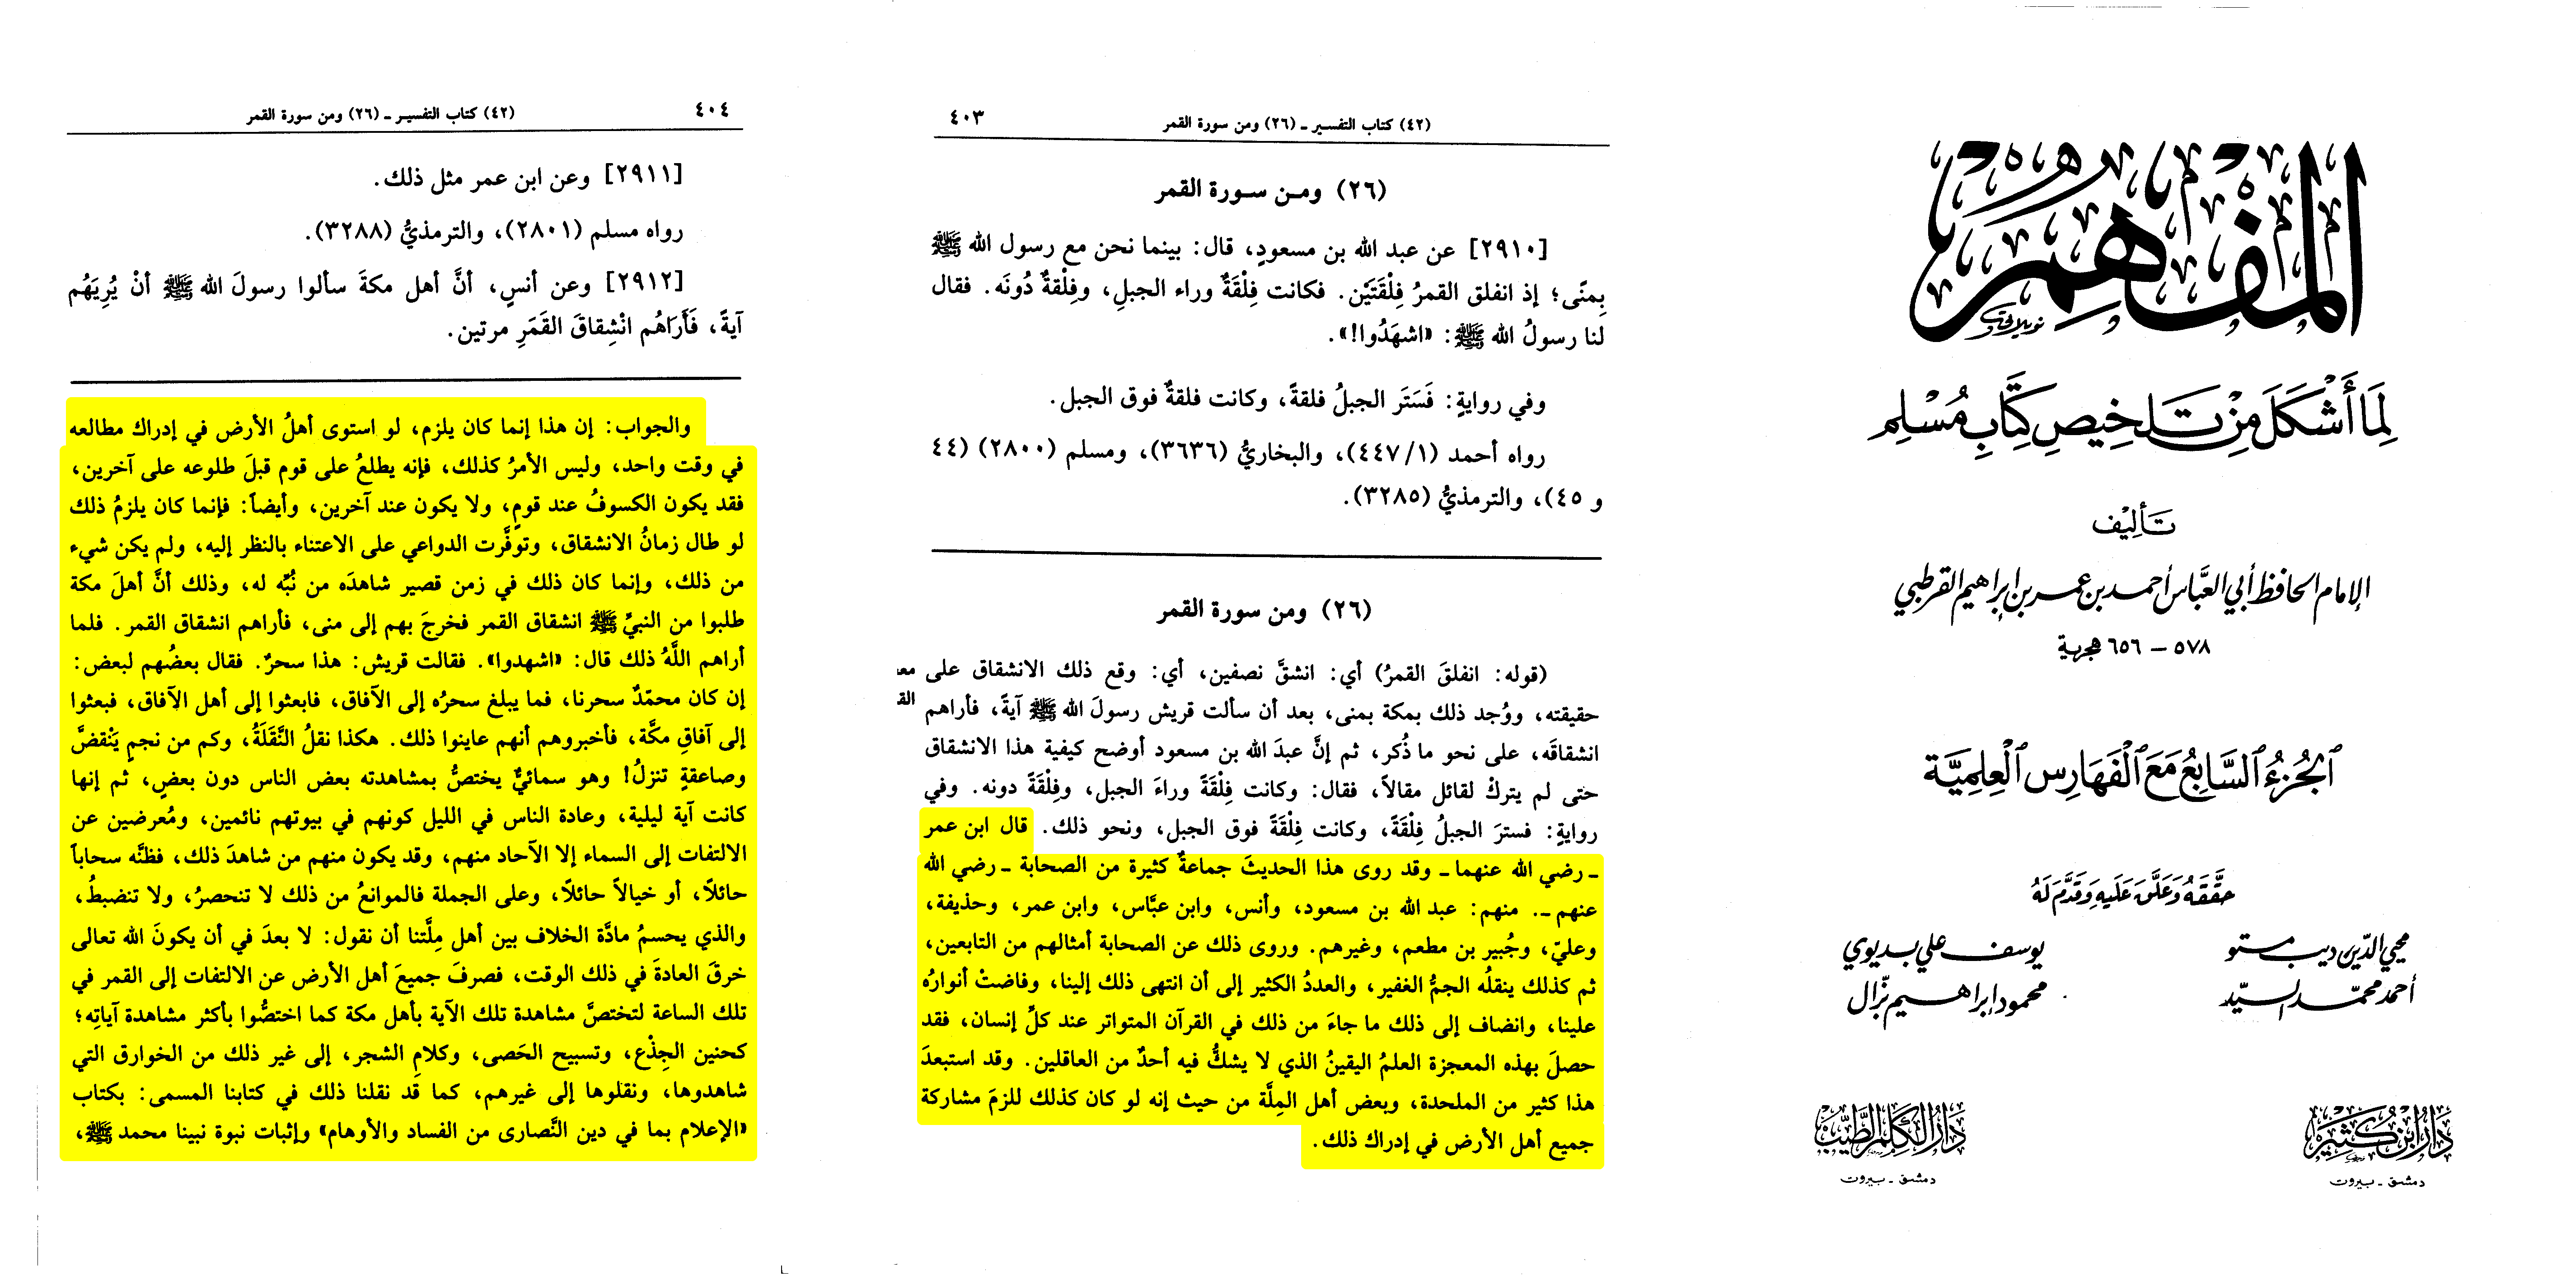 المفهم
لِمَا أَشْكَلَ مِنْ تَلخِيصِ كِتَابِ مُسْلِم
تَأليف
الإمام الحافظ أبي العبَّاس أحمد بن عمر بن إبراهيم القرطبي
٥٧٨ – ٦٥٦ هجرية
الجُزءُ السَّابعُ مَعَ الْفَهَارِس الْعِلميَّة
حَقَّقَهُ وَعَلَّقَ عَلَيهِ وَقَدَّمَ لَهُ
محيي الدّين ديب مستو
يوسف علي بديوي
أحمد محمّد السيّد
محمود إبراهيم بزّال
دار ابن كثير
دمشق - بيروت
دار الكلم الطيب
دمشق - بيروت
(٤٢) كتاب التفسير - (٢٦) ومن سورة القمر
٤٠٣
(٢٦) ومن سورة القمر
[٢٩١٠] عن عبد الله بن مسعودٍ، قال: بينما نحن مع رسول الله ﷺ
بِمنًى؛ إذ انفلق القمرُ فِلْقَتَيْن. فكانت فِلْقَةٌ وراء الجبلِ، وفِلْقةٌ دُونَه. فقال
لنا رسولُ الله ﷺ: «اشهَدُوا!».
وفي روايةٍ: فَسَتَر الجبلُ فلقةً، وكانت فلقةٌ فوق الجبل.
رواه أحمد (٤٤٧/١)، والبخاريُّ (٣٦٣٦)، ومسلم (٢٨٠٠) (٤٤
و ٤٥)، والترمذيُّ (٣٢٨٥).
(٢٦) ومن سورة القمر
(قوله: انفلقَ القمرُ) أي: انشقَّ نصفين، أي: وقع ذلك الانشقاق على معـ
حقيقته، ووُجد ذلك بمكة بمنى، بعد أن سألت قريش رسولَ الله ﷺ آيةً، فأراهم القـ
انشقاقَه، على نحو ما ذُكر، ثم إنَّ عبدَ الله بن مسعود أوضح كيفية هذا الانشقاق
حتى لم يتركْ لقائل مقالاً، فقال: وكانت فِلْقَةً وراءَ الجبل، وفِلْقَةً دونه. وفي
روايةٍ: فسترَ الجبلُ فِلْقَةً، وكانت فِلْقَةً فوق الجبل، ونحو ذلك. قال ابن عمر
- رضي الله عنهما - وقد روى هذا الحديثَ جماعةٌ كثيرة من الصحابة - رضي الله
عنهم -. منهم: عبد الله بن مسعود، وأنس، وابن عبَّاس، وابن عمر، وحذيفة،
وعليّ، وجُبير بن مطعم، وغيرهم. وروى ذلك عن الصحابة أمثالهم من التابعين،
ثم كذلك ينقلُه الجمُّ الغفير، والعددُ الكثير إلى أن انتهى ذلك إلينا، وفاضتْ أنوارُه
علينا، وانضاف إلى ذلك ما جاءَ من ذلك في القرآن المتواتر عند كلِّ إنسان، فقد
حصلَ بهذه المعجزة العلمُ اليقينُ الذي لا يشكُّ فيه أحدٌ من العاقلين. وقد استبعدَ
هذا كثير من الملحدة، وبعض أهل المِلَّة من حيث إنه لو كان كذلك للزمَ مشاركة
جميع أهل الأرض في إدراك ذلك.
٤٠٤
(٤٢) كتاب التفسير - (٢٦) ومن سورة القمر
[٢٩١١] وعن ابن عمر مثل ذلك.
رواه مسلم (٢٨٠١)، والترمذيُّ (٣٢٨٨).
[٢٩١٢] وعن أنسٍ، أنَّ أهل مكةَ سألوا رسولَ الله ﷺ أنْ يُرِيَهُم
آيةً، فَأَرَاهُم انْشِقاقَ القَمَرِ مرتين.
والجواب: إن هذا إنما كان يلزم، لو استوى أهلُ الأرض في إدراك مطالعه
في وقت واحد، وليس الأمرُ كذلك، فإنه يطلعُ على قوم قبلَ طلوعه على آخرين،
فقد يكون الكسوفُ عند قومٍ، ولا يكون عند آخرين، وأيضاً: فإنما كان يلزمُ ذلك
لو طال زمانُ الانشقاق، وتوفَّرت الدواعي على الاعتناء بالنظر إليه، ولم يكن شيء
من ذلك، وإنما كان ذلك في زمن قصير شاهدَه من نُبِّه له، وذلك أنَّ أهلَ مكة
طلبوا من النبيِّ ﷺ انشقاق القمر فخرجَ بهم إلى منى، فأراهم انشقاق القمر. فلما
أراهم اللَّهُ ذلك قال: «اشهدوا». فقالت قريش: هذا سحرٌ. فقال بعضُهم لبعض:
إن كان محمّدٌ سحرنا، فما يبلغ سحرُه إلى الآفاق، فابعثوا إلى أهل الآفاق، فبعثوا
إلى آفاقِ مكَّة، فأخبروهم أنهم عاينوا ذلك. هكذا نقلُ النَّقَلَةُ، وكم من نجمٍ يَنْقضُّ
وصاعقةٍ تنزلُ! وهو سمائيٌّ يختصُّ بمشاهدته بعض الناس دون بعضٍ، ثم إنها
كانت آية ليلية، وعادة الناس في الليل كونهم في بيوتهم نائمين، ومُعرضين عن
الالتفات إلى السماء إلا الآحاد منهم، وقد يكون منهم من شاهدَ ذلك، فظنَّه سحاباً
حائلاً، أو خيالاً حائلاً، وعلى الجملة فالموانعُ من ذلك لا تنحصرُ، ولا تنضبطُ،
والذي يحسمُ مادَّة الخلاف بين أهل مِلَّتنا أن نقول: لا بعدَ في أن يكونَ الله تعالى
خرقَ العادةَ في ذلك الوقت، فصرفَ جميعَ أهل الأرض عن الالتفات إلى القمر في
تلك الساعة لتختصَّ مشاهدة تلك الآية بأهل مكة كما اختصُّوا بأكثر مشاهدة آياتِه؛
كحنين الجِذْع، وتسبيح الحَصى، وكلامِ الشجر، إلى غير ذلك من الخوارق التي
شاهدوها، ونقلوها إلى غيرهم، كما قد نقلنا ذلك في كتابنا المسمى: بكتاب
«الإعلام بما في دين النَّصارى من الفساد والأوهام» وإثبات نبوة نبينا محمد ﷺ،